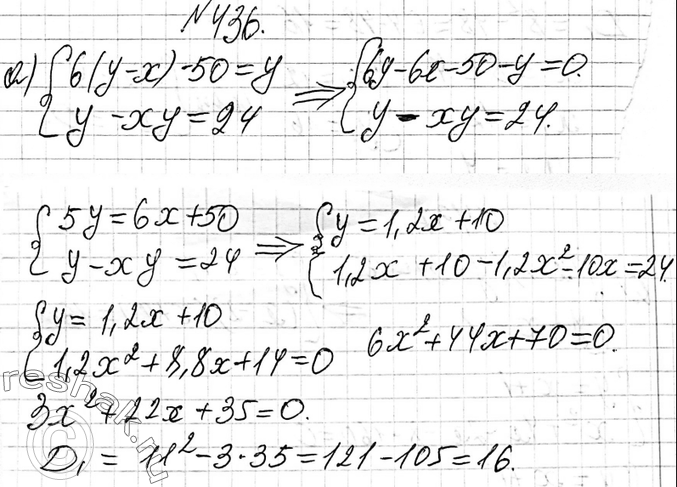 №436.
а) { 6(y-x)-50=y ⇒ { 6y-6x-50-y=0.
{ y-xy=24 { y-xy=24.
{ 5y=6x+50 ⇒ { y=1,2x+10
{ y-xy=24 { 1,2x+10-1,2x²-10x=24.
{ y=1,2x+10
{ 1,2x²+8,8x+14=0 6x²+44x+70=0.
3x²+22x+35=0.
D₁=11²-3·35=121-105=16.
reshak.ru